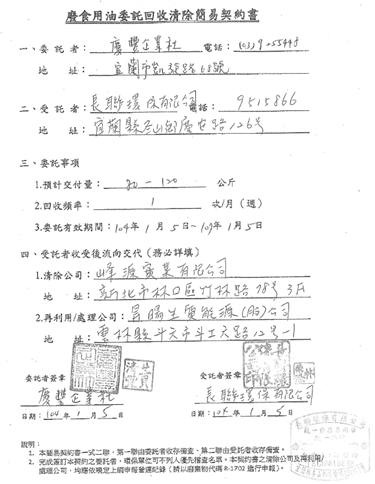 廢食用油委託回收清除簡易契約書
一、委託者：慶豐企業社 電話：(03)9255448
地 址：宜蘭市凱旋路68號
二、受託者：長聯環保有限公司 電話：9515866
地 址：宜蘭縣冬山鄉廣安路126號
三、委託事項
1.預計交付量：80－120 公斤
2.回收頻率：1 次/月（週）
3.委託有效期間：104年1月5日~109年1月5日
四、受託者收受後流向交代（務必詳填）
1.清除公司：峰源實業有限公司
地 址：新北市林口區竹林路78號3F
2.再利用/處理公司：昇陽生質能源(股)公司
地 址：雲林縣斗六市斗工六路12號-1
委託者簽章 受託者簽章
慶豐企業社 長聯環保有限公司
日期：104年1月5日 日期：104年1月5日
說明：
1. 本簡易契約書一式二聯，第一聯由委託者收存備查，第二聯由受託者收存備查。
2. 完成簽訂本契約之委託者，環保單位可不列入優先稽查名單。本契約書之清除公司及再利用/
處理公司，均應依規定上網申報營運紀錄（請以廢棄物代碼 R-1702 進行申報）。